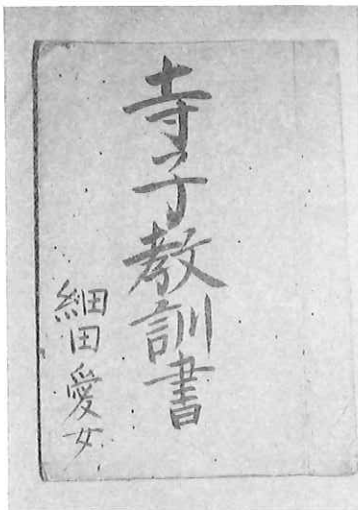 寺子教訓書
細田愛女